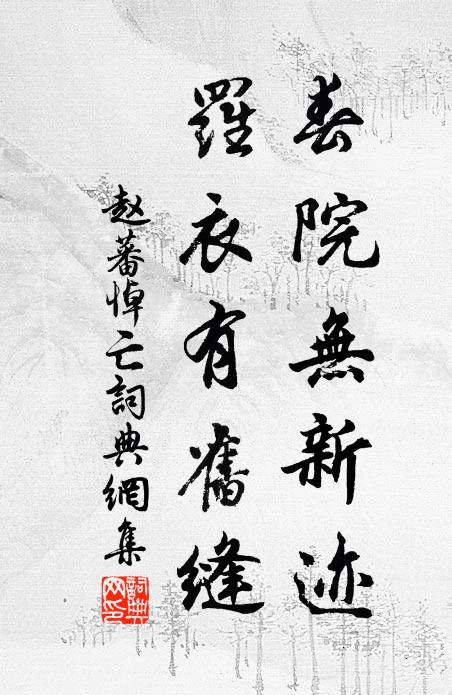 春院無新迹
羅衣有舊縫
赵蕃悼亡詞典網集
詞典